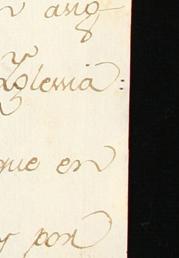 n ang
Yglesia:
que en
y por